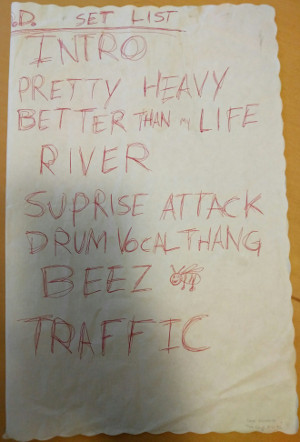 .D. SET LIST
INTRO
PRETTY HEAVY
BETTER THAN my LIFE
RIVER
SUPRISE ATTACK
DRUM VOCAL THANG
BEEZ
TRAFFIC